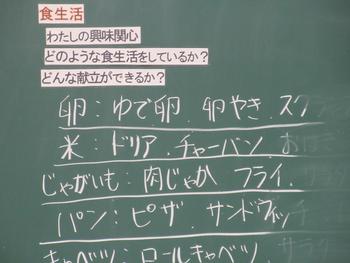 食生活
わたしの興味関心
どのような食生活をしているか?
どんな献立ができるか?
卵:ゆで卵.卵やき.スク
米:ドリア.チャーハン.おはぎ
じゃがいも:肉じゃが フライ.
パン:ピザ.サンドウィッチ
キャベツ:ロールキャベツ.サラダ